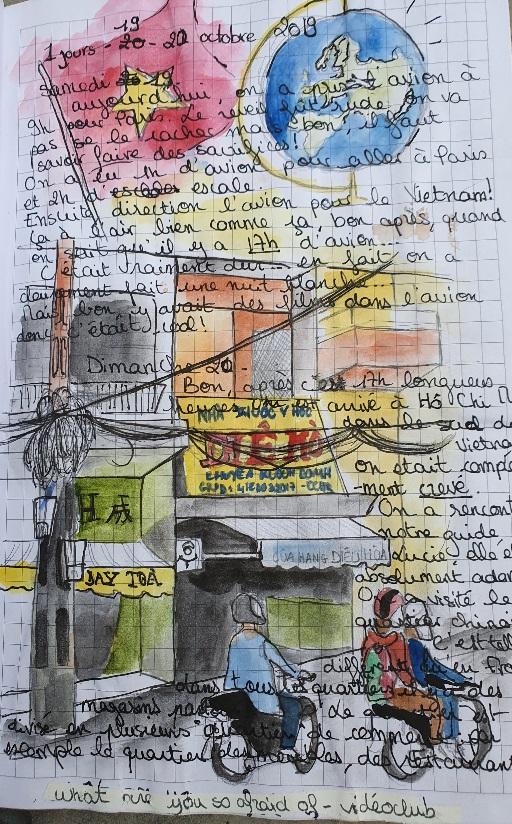 19
1 jours - 20 - 20 octobre 2019
Samedi 19
aujourd'hui, on a pris l'avion à
9h pour Paris. Le réveil fut rude on va
pas se le cacher mais bon, il faut
savoir faire des sacrifices!
On a eu 1h d'avion pour aller à Paris
et 2h d'escale.
Ensuite direction l'avion pour le Vietnam!
ça a l'air bien comme ça, bon après quand
on sait qu'il y a 17h d'avion...
C'était vraiment dur... en fait on a
fait une nuit
Mais bon, y avait des films dans l'avion
donc c'était cool!
Dimanche 20 -
Bon, après 17h longueurs
heures on est arrivé à Hô Chi M
dans le sud du
Vietna
on était complè
-ment crevé
On a rencont
notre guide
Lucie elle e
absolument ador
On visité le
quartier chinoi
C'est tell
différent en Fra
dans tous les quartiers il y a des
magasins est
divisé en plusieurs quartier de commerce par
exemple le quartier des meubles, des restaurant
NHÀ THUỐC Y HỌC
DIỆU
CHUYÊN
DAY TOÀ
CỬA HÀNG DIỆU HOÀ
6
what are you so afraid of - vidéoclub